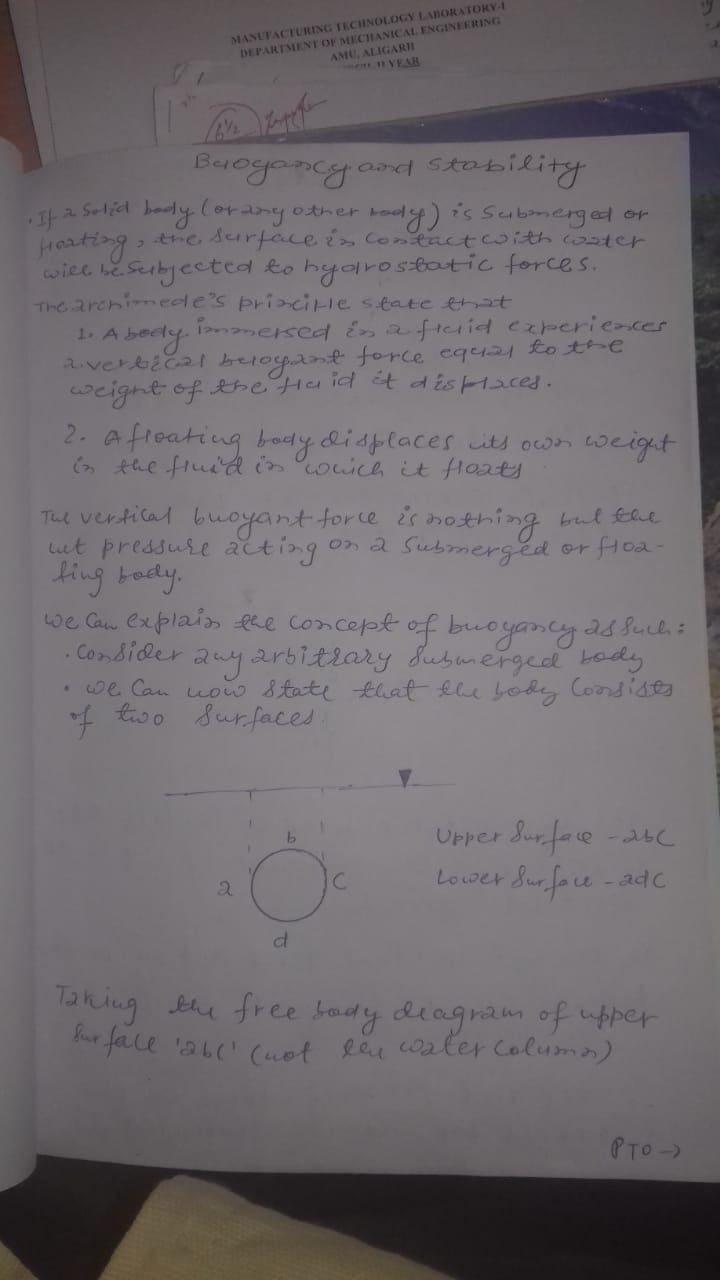 MANUFACTURING TECHNOLOGY LABORATORY-I
DEPARTMENT OF MECHANICAL ENGINEERING
AMU, ALIGARH
II YEAR
6 1/2
Buoyancy and Stability
. If a Solid body (or any other body) is Submerged or
floating, the surface in contact with water
will be Subjected to hydrostatic forces.
The archimede's principle state that
1. A body immersed in a fluid experiences
a vertical buoyant force equal to the
weight of the fluid it displaces.
2. A floating body displaces its own weight
in the fluid in which it floats
The vertical buoyant force is nothing but the
net pressure acting on a Submerged or floa-
ting body.
We Can explain the concept of buoyancy as Such:
. Consider any arbitrary Submerged body
. We Can now State that the body Consists
of two Surfaces.
b
a
c
d
Upper Surface - abc
Lower Surface - adc
Taking the free body diagram of upper
Surface 'abc' (not the water column)
PTO →